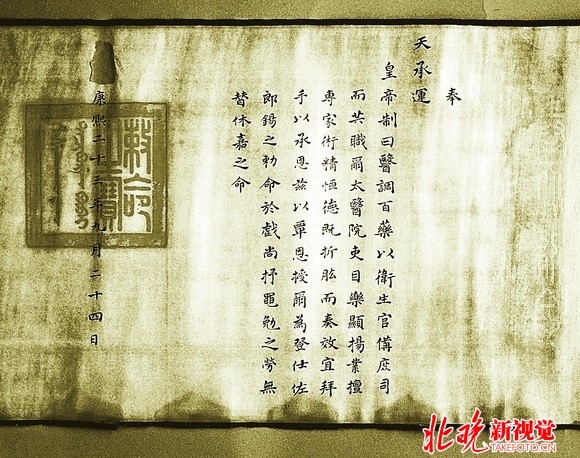 奉
天承運
皇帝制曰醫調百藥以衛生官備庶司
而共職爾太醫院吏目樂顯揚業擅
專家術精恒德既折肱而奏效宜拜
手以承恩茲以覃恩授爾為登仕佐
郎錫之勅命於戲尚抒黽勉之勞無
替休嘉之命
康熙二十三年九月二十四日
敕命之寶
北晚新視觉
TAKEFOTO.CN